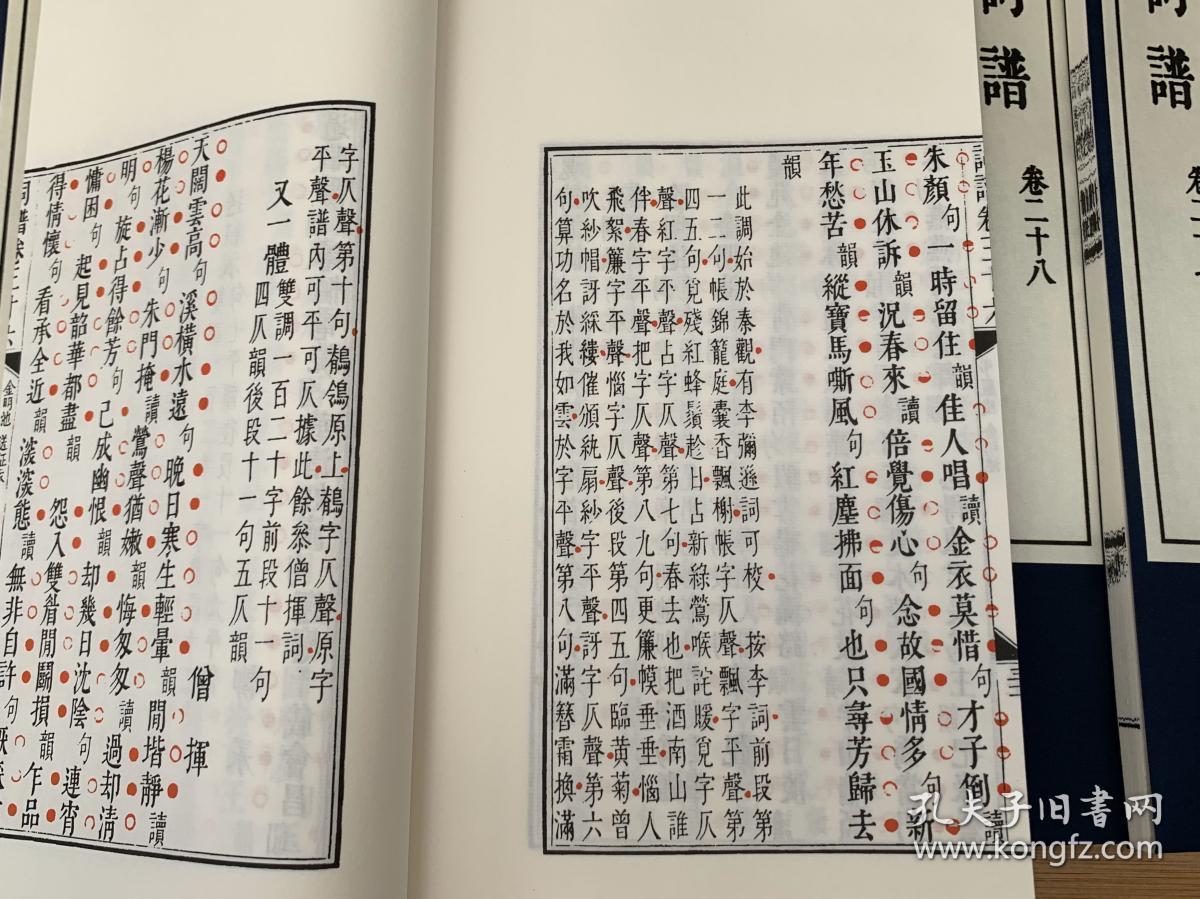 朱顏句一時留住韻佳人唱讀金衣莫惜句才子倒讀
玉山休訴韻況春來讀倍覺傷心句念故國情多句新
年愁苦韻縱寶馬嘶風句紅塵拂面句也只尋芳歸去
韻
此調始於秦觀有李彌遜詞可校按李詞前段第
一二句帳錦籠庭囊香飄榭帳字仄聲飄字平聲第
四五句覓殘紅蜂鬚趁日占新綠鶯喉詫暖覓字仄
聲紅字平聲占字仄聲第七句春去也把酒南山誰
伴春字平聲把字仄聲第八九句更簾幙垂垂惱人
飛絮簾字平聲惱字仄聲後段第四五句臨黃菊曾
吹紗帽訝綵縷催頒紈扇紗字平聲訝字仄聲第六
句算功名於我如雲於字平聲第八句滿簪霜換滿
字仄聲第十句鶺鴒原上鶺字仄聲原字
平聲譜內可平可仄據此餘叅僧揮詞
又一體雙調一百二十字前段十一句
四仄韻後段十一句五仄韻
僧揮
天闊雲高句溪橫水遠句晚日寒生輕暈韻閒堦靜讀
楊花漸少句朱門掩讀鶯聲猶嫩韻悔匆匆讀過却清
明句旋占得餘芳句已成幽恨韻却幾日沈陰句連宵
慵困句起見韶華都盡韻怨入雙眉閒鬭損韻乍品
得情懷句看承全近韻淡淡態讀無非自許句
詞譜卷三十六
金明池
送征衣
譜
卷二十八
譜
孔夫子旧书网
www.kongfz.com